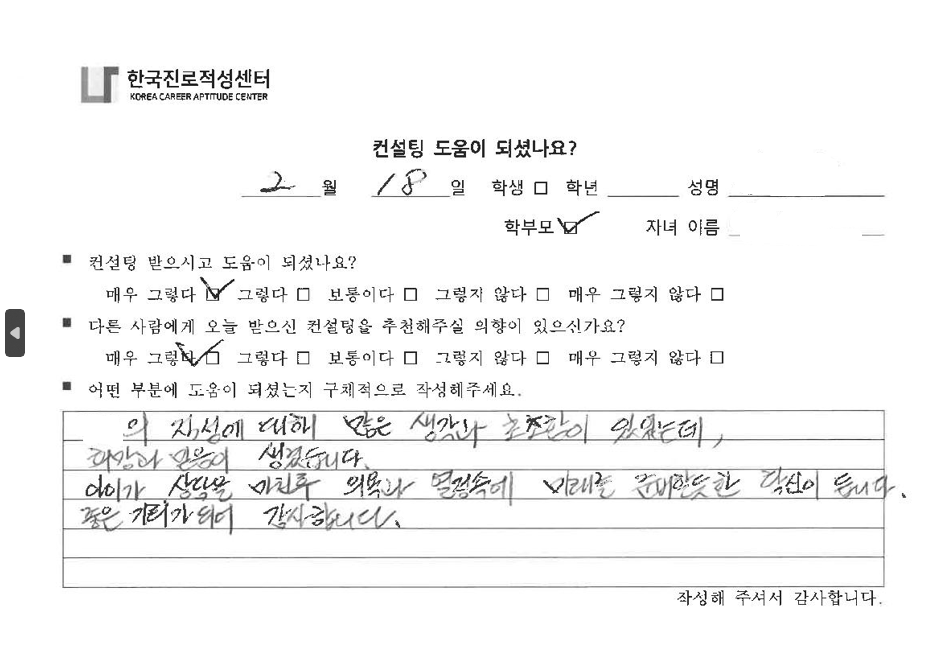 한국진로적성센터
KOREA CAREER APTITUDE CENTER
컨설팅 도움이 되셨나요?
2 월 18 일 학생 □ 학년 성명
학부모 ☑ 자녀 이름
■ 컨설팅 받으시고 도움이 되셨나요?
매우 그렇다 ☑ 그렇다 □ 보통이다 □ 그렇지 않다 □ 매우 그렇지 않다 □
■ 다른 사람에게 오늘 받으신 컨설팅을 추천해주실 의향이 있으신가요?
매우 그렇다 ☑ 그렇다 □ 보통이다 □ 그렇지 않다 □ 매우 그렇지 않다 □
■ 어떤 부분에 도움이 되셨는지 구체적으로 작성해주세요.
의 적성에 대해 많은 생각과 초조함이 있었는데,
희망과 믿음이 생겼습니다.
아이가 상담을 마친후 의욕과 열정속에 미래를 준비할듯한 확신이 듭니다.
좋은 기회가 되어 감사합니다.
작성해 주셔서 감사합니다.